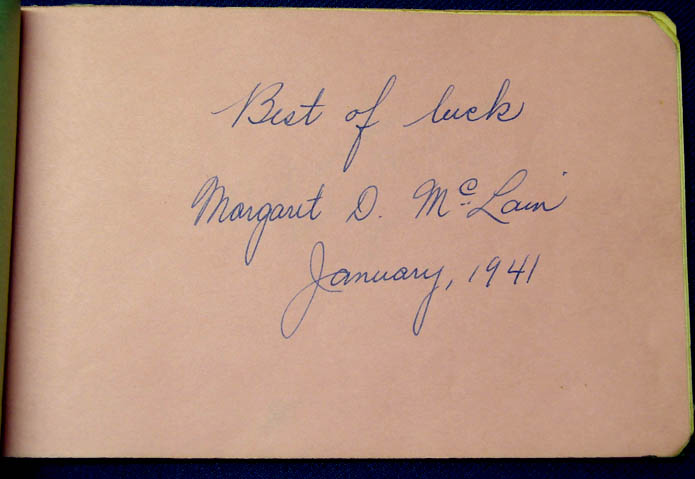 Best of luck
Margaret D. McLain
January, 1941